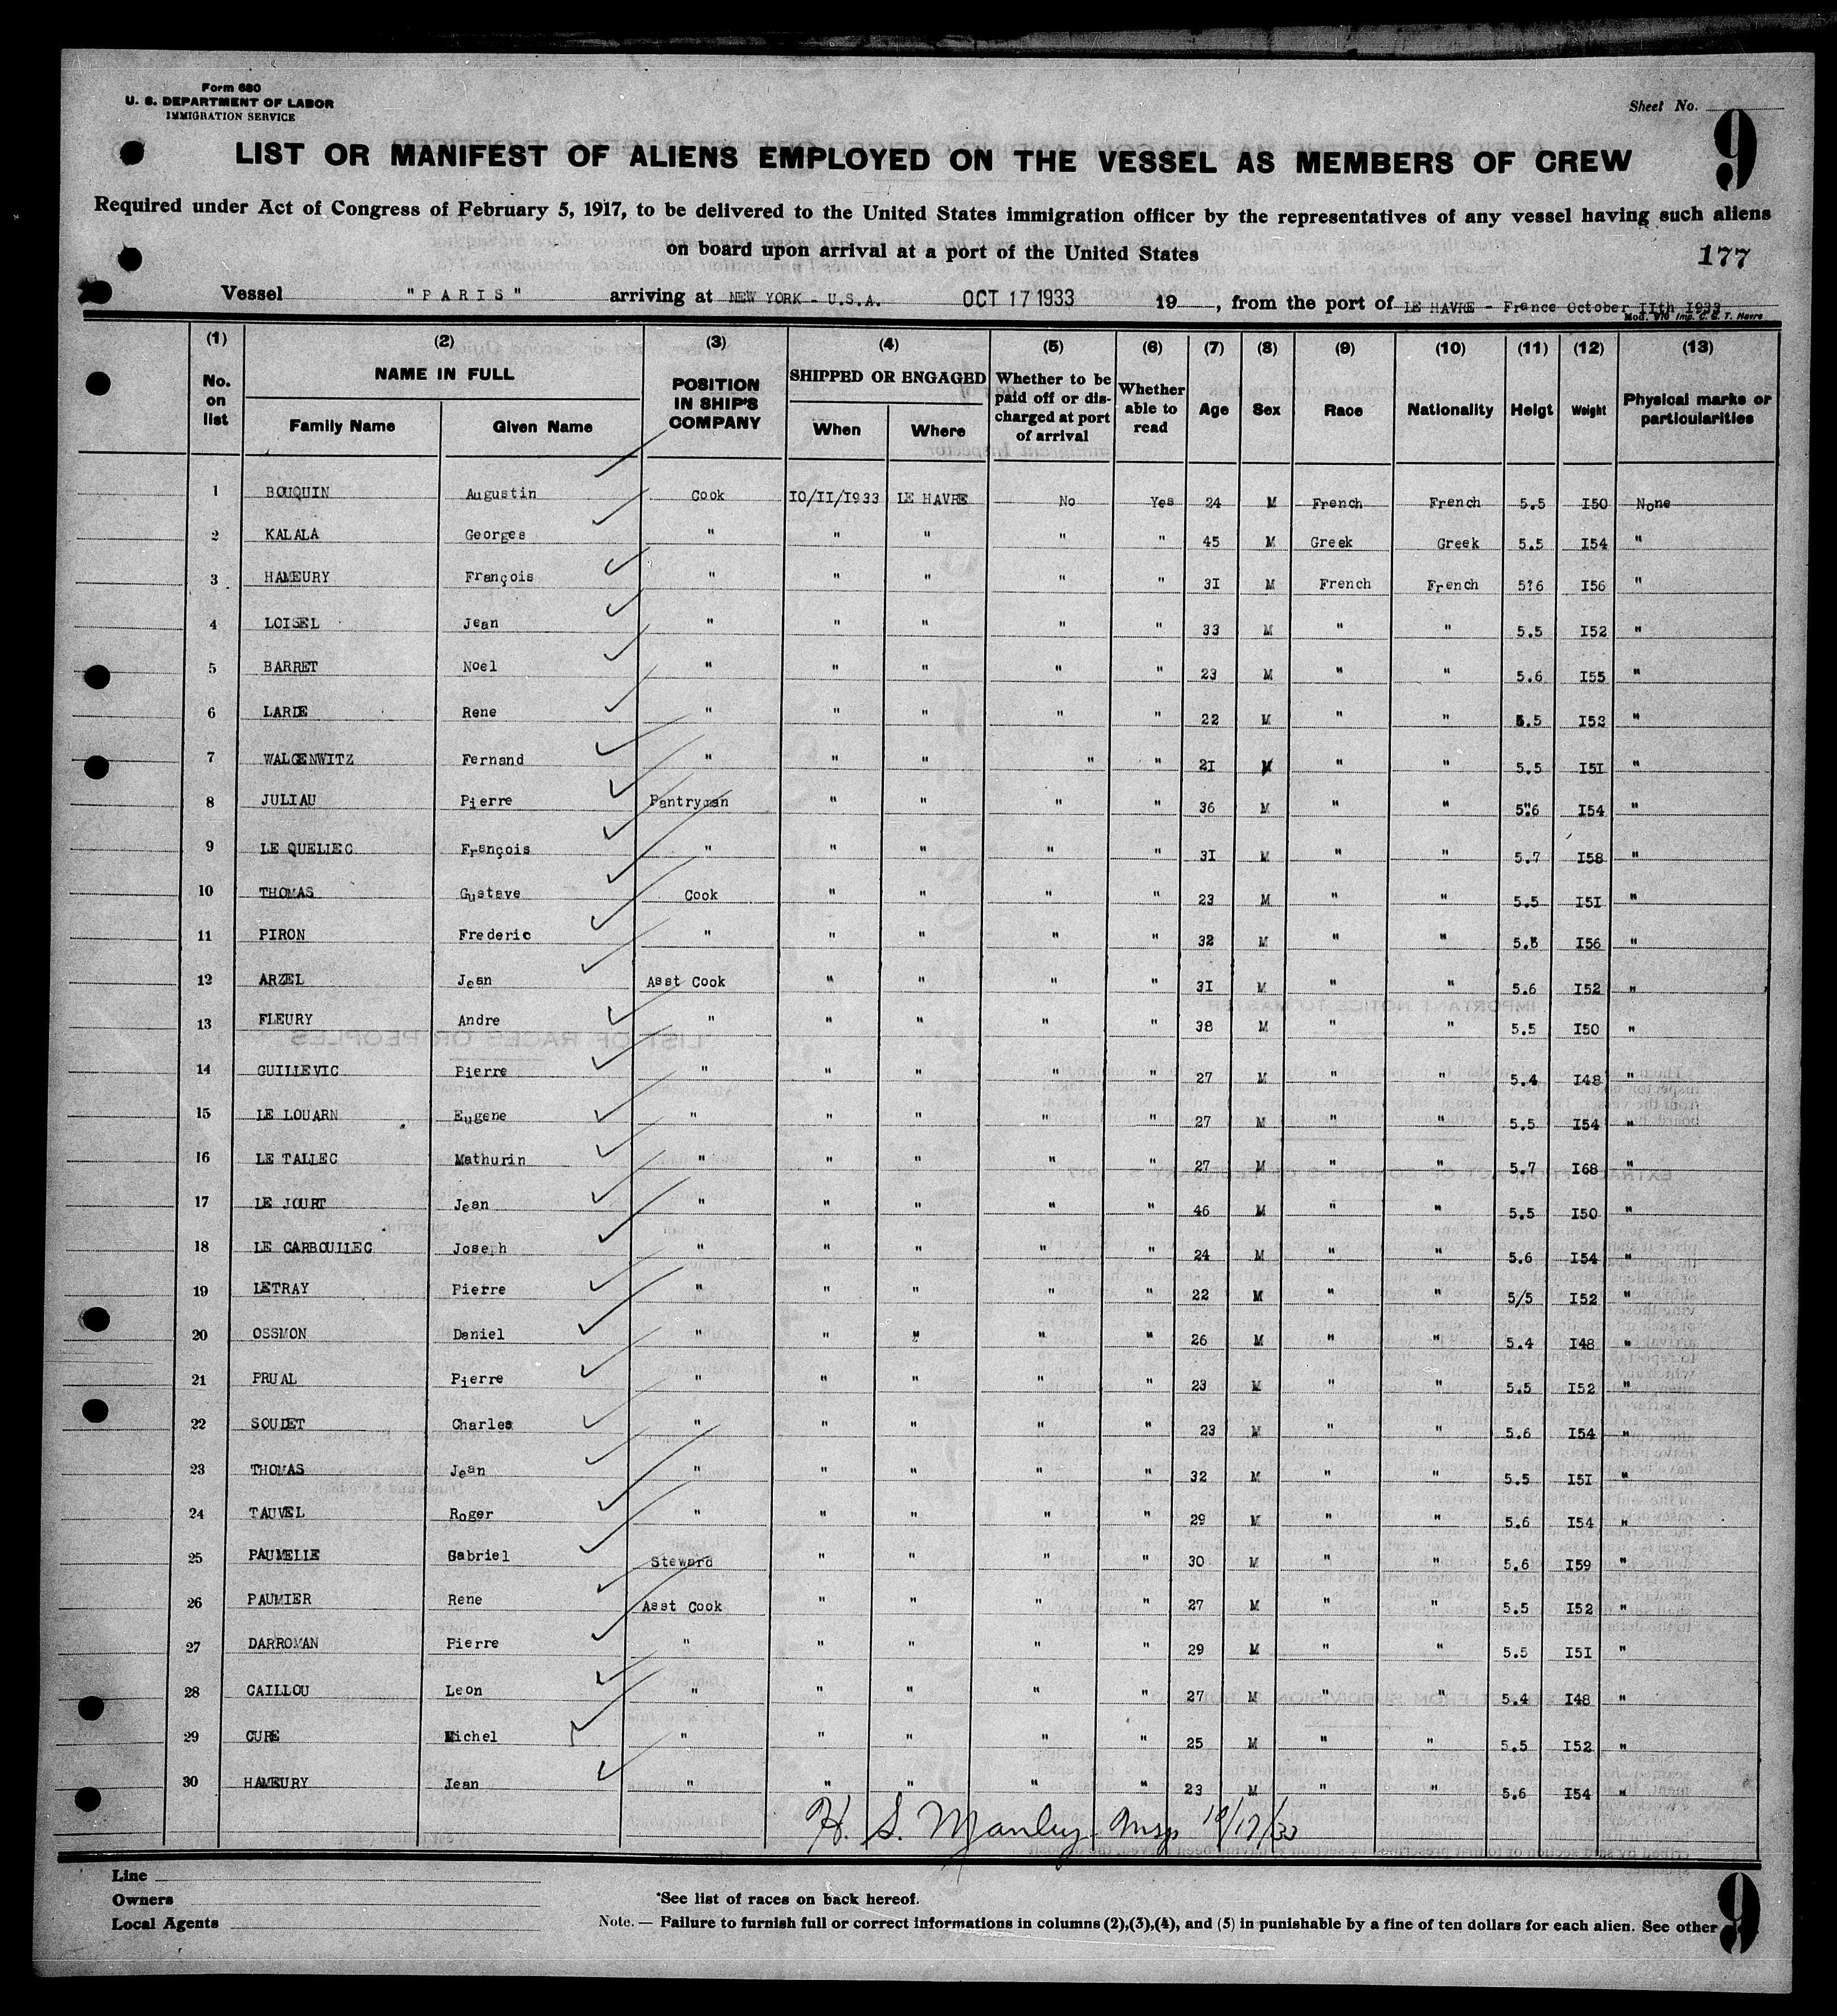 Form 680
U. S. DEPARTMENT OF LABOR
IMMIGRATION SERVICE
Sheet No.
9
LIST OR MANIFEST OF ALIENS EMPLOYED ON THE VESSEL AS MEMBERS OF CREW
Required under Act of Congress of February 5, 1917, to be delivered to the United States immigration officer by the representatives of any vessel having such aliens
on board upon arrival at a port of the United States
177
Vessel "PARIS" arriving at NEW YORK - U.S.A. OCT 17 1933 19 , from the port of LE HAVRE - France October IIth I933
Mod. 910 Imp. C. G. T. Havre
(1) (2) (3) (4) (5) (6) (7) (8) (9) (10) (11) (12) (13)
No. on list NAME IN FULL Family Name Given Name POSITION IN SHIP'S COMPANY SHIPPED OR ENGAGED When Where Whether to be paid off or discharged at port of arrival Whether able to read Age Sex Race Nationality Heigt Weight Physical marks or particularities
1 BOUQUIN Augustin Cook IO/II/I933 LE HAVRE No Yes 24 M French French 5.5 I50 None
2 KALALA Georges " " " " " 45 M Greek Greek 5.5 I54 "
3 HAMEURY François " " " " " 3I M French French 5?6 I56 "
4 LOISEL Jean " " " " " 33 M " " 5.5 I52 "
5 BARRET Noel " " " " " 23 M " " 5.6 I55 "
6 LARDE Rene " " " " " 22 M " " 5.5 I53 "
7 WALGENWITZ Fernand " " " " " 2I M " " 5.5 I5I "
8 JULIAU Pierre Pantryman " " " " 36 M " " 5"6 I54 "
9 LE QUELIEC François " " " " " 3I M " " 5.7 I58 "
10 THOMAS Gustave Cook " " " " 23 M " " 5.5 I5I "
11 PIRON Frederic " " " " " 32 M " " 5.6 I56 "
12 ARZEL Jean Asst Cook " " " " 3I M " " 5.6 I52 "
13 FLEURY Andre " " " " " 38 M " " 5.5 I50 "
14 GUILLEVIC Pierre " " " " " 27 M " " 5.4 I48 "
15 LE LOUARN Eugene " " " " " 27 M " " 5.5 I54 "
16 LE TALLEC Mathurin " " " " " 27 M " " 5.7 I68 "
17 LE JOURT Jean " " " " " 46 M " " 5.5 I50 "
18 LE CARBOULLEC Joseph " " " " " 24 M " " 5.6 I54 "
19 LETRAY Pierre " " " " " 22 M " " 5/5 I52 "
20 OSSMON Daniel " " " " " 26 M " " 5.4 I48 "
21 PRUAL Pierre " " " " " 23 M " " 5.5 I52 "
22 SOUDET Charles " " " " " 23 M " " 5.6 I54 "
23 THOMAS Jean " " " " " 32 M " " 5.5 I5I "
24 TAUVEL Roger " " " " " 29 M " " 5.6 I54 "
25 PAUMELLE Gabriel Steward " " " " 30 M " " 5.6 I59 "
26 PAUMIER Rene Asst Cook " " " " 27 M " " 5.5 I52 "
27 DARROMAN Pierre " " " " " 29 M " " 5.5 I5I "
28 CAILLOU Leon " " " " " 27 M " " 5.4 I48 "
29 CURE Michel " " " " " 25 M " " 5.5 I52 "
30 HAMEURY Jean " " " " " 23 M " " 5.6 I54 "
H. S. Manley Insp 10/17/33
Line
Owners
Local Agents
*See list of races on back hereof.
Note. — Failure to furnish full or correct informations in columns (2),(3),(4), and (5) in punishable by a fine of ten dollars for each alien. See other
9